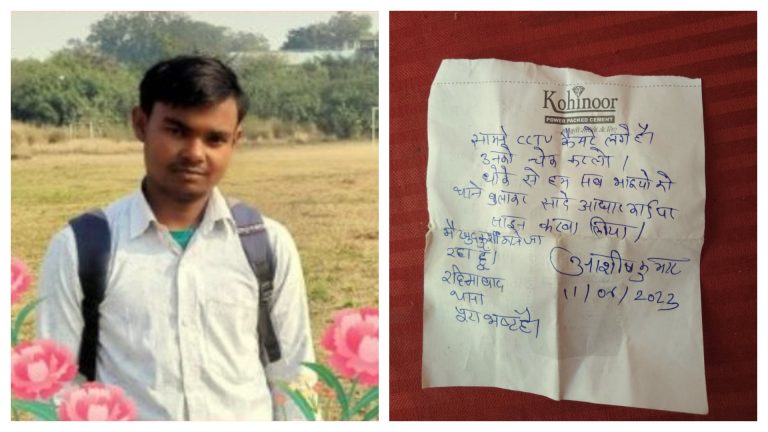 Kohinoor
POWER PACKED CEMENT
सामने CCTV कैमरे लगे है।
उनको चेक करलो।
धोके से हम सब भाइयो को
थाने बुलाकर सादे आधार कार्ड पर
साइन करवा लिया।
मै खुदकुशी करने जा
रहा हूं।
आशीष कुमार
11/06/2023
रहिमाबाद
थाना
पूरा भ्रष्ट है।